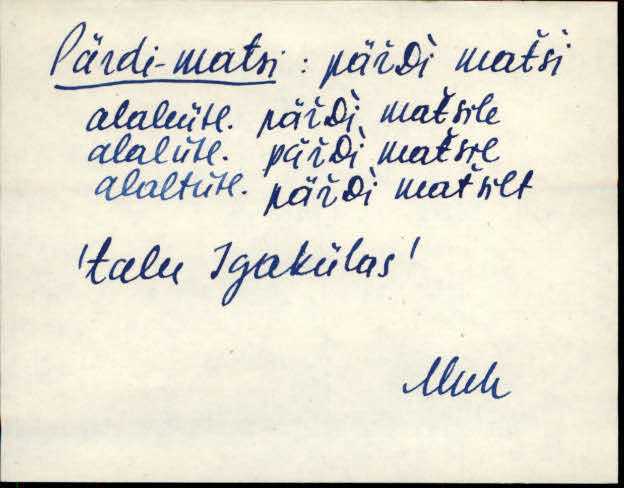 Pärdi-matsi : päřDì maťśi
alaleütl. päřDì maťśile
alalütl. päřDì maťśil
alaltütl. päřDì maťśilt
'talu Igakülas'
Muh